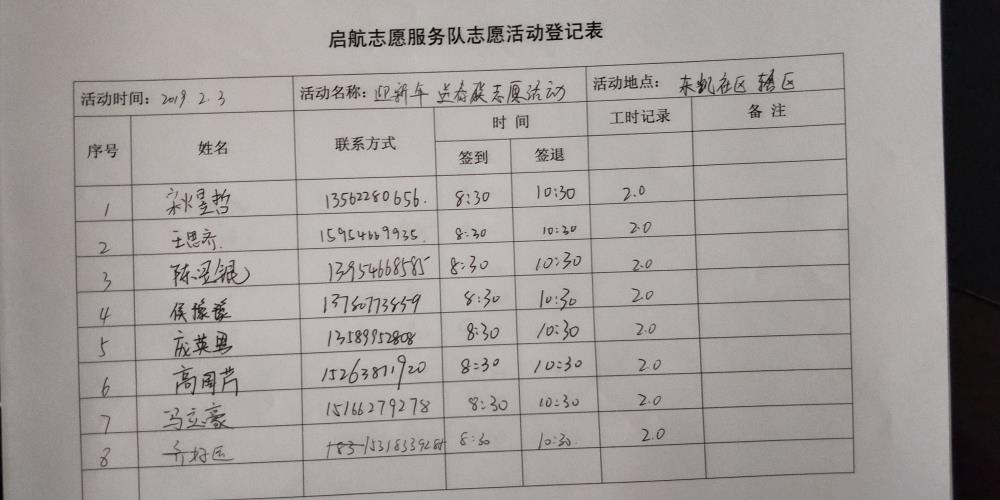 启航志愿服务队志愿活动登记表
活动时间：2019 2.3 活动名称：迎新年 送春联志愿活动 活动地点：东凯社区 辖区
序号 姓名 联系方式 时间 工时记录 备注
签到 签退
1 13562280656. 8:30 10:30 2.0
2 王思齐. 15954669935. 8:30 10:30 2.0
3 13954668585 8:30 10:30 2.0
4 侯豫豫 13780773859 8:30 10:30 2.0
5 庞英男 13589952808 8:30 10:30 2.0
6 高国芹 15263871920 8:30 10:30 2.0
7 冯立豪 15166279278 8:30 10:30 2.0
8 8:30 10:30. 2.0